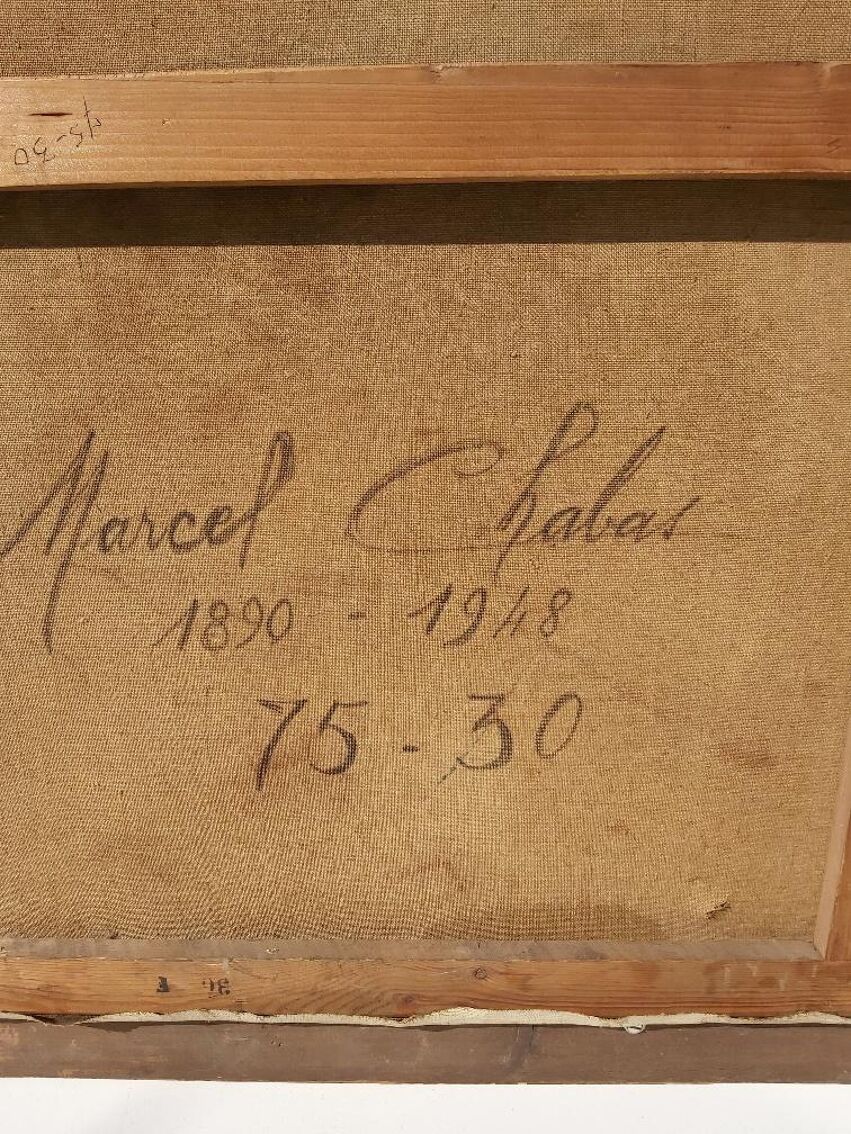 75-30
Marcel Chabas
1890 - 1948
75 - 30
F 30